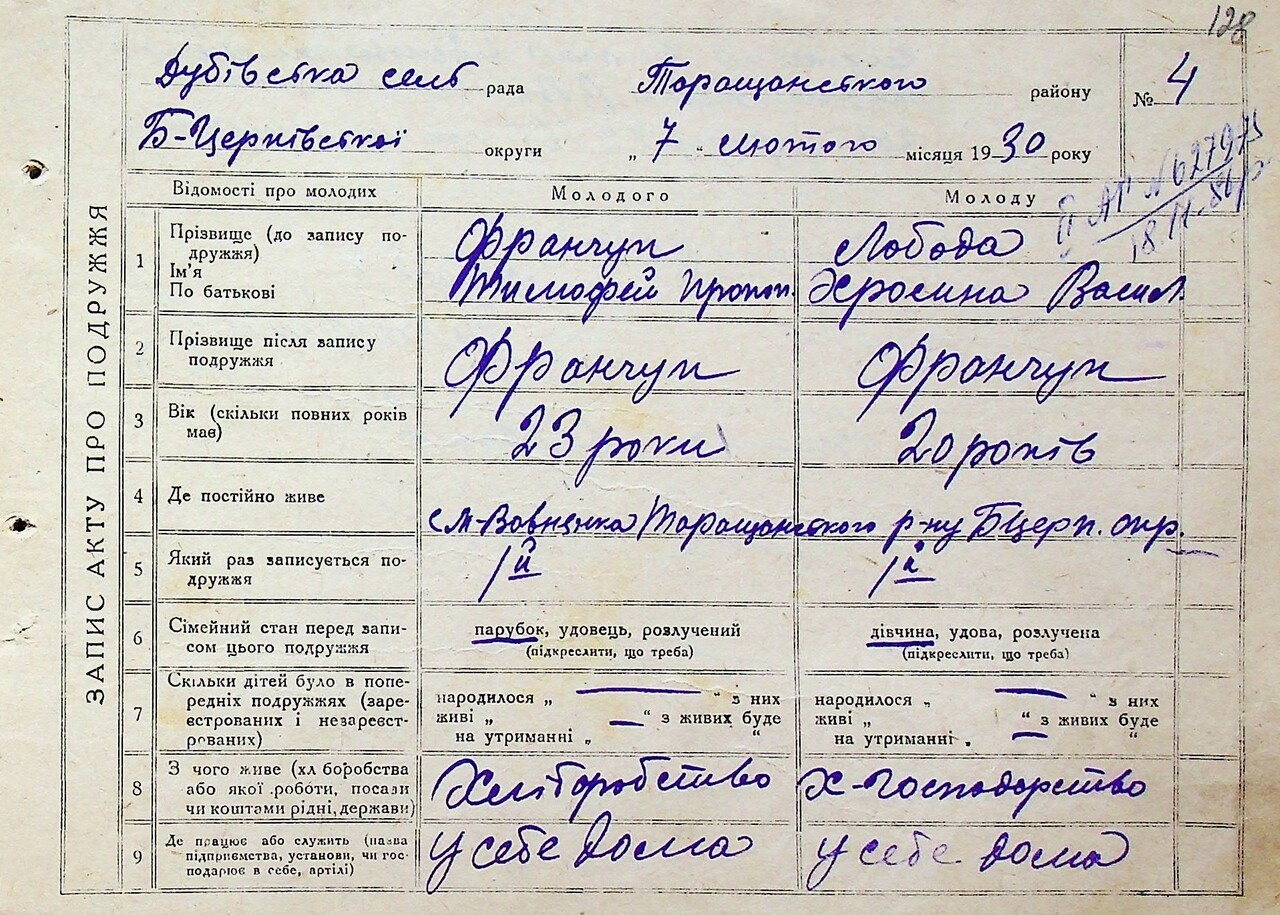 128
Дубівська сель рада Таращанського району № 4
Б-Церківської округи „ 7 “ лютого місяця 1930 року
ЗАПИС АКТУ ПРО ПОДРУЖЖЯ
Відомості про молодих Молодого Молоду
II АГ № 627975
18.11.86р.
1 Прізвище (до запису по- Франчук Лобода
дружжя)
Ім'я Тимофей Прокоп. Хросина Васил
По батькові
2 Прізвище після запису Франчук Франчук
подружжя
3 Вік (скільки повних років 23 роки 20 років
має)
4 Де постійно живе
Таращанського р-ну БЦерк. окр.
5 Який раз записується по- 1й 1й
дружжя
6 Сімейний стан перед запи- парубок, удовець, розлучений дівчина, удова, розлучена
сом цього подружжя (підкреслити, що треба) (підкреслити, що треба)
7 Скільки дітей було в попе- народилося „ — “ з них народилося „ — “ з них
редніх подружжях (заре- живі „ — “ з живих буде живі „ — “ з живих буде
єстрованих і незареєст- на утриманні „ “ на утриманні „ “
рованих)
8 З чого живе (хліборобства Хліборобство Х-Господарство
або якої роботи, посади
чи коштами рідні, держави)
9 Де працює або служить (назва у себе дома у себе дома
підприємства, установи, чи гос-
подарює в себе, артілі)